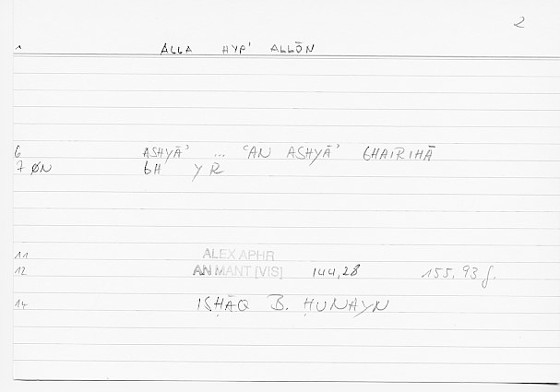 2
1 ALLA HYP' ALLŌN
6 ASHYĀ' ... 'AN ASHYĀ' GHAIRIHĀ
7 ØN GH Y R
11 ALEX APHR
12 AN MANT [VIS] 144,28 155,93 f.
14 ISḤĀQ B. ḤUNAYN